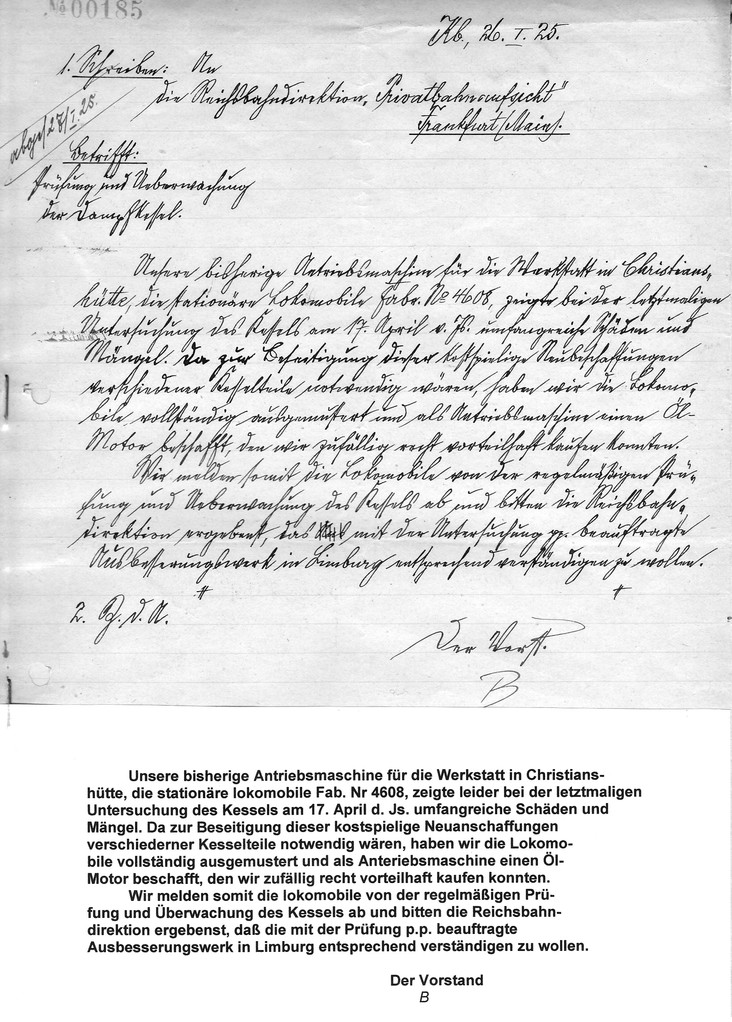 № 00185
Kb, 26. I. 25.
1. Schreiben: An
die Reichsbahndirektion, „Privatbahnaufsicht"
Frankfurt (Main).
abges. 27/I. 25.
Betrifft:
Prüfung und Ueberwachung
der Dampfkessel.
Unsere bisherige Antriebsmaschine für die Werkstatt in Christians-
hütte, die stationäre Lokomobile Fabr. No 4608, zeigte bei der letztmaligen
Untersuchung des Kessels am 17. April v. Js. umfangreiche Schäden und
Mängel. Da zur Beseitigung dieser kostspielige Neubeschaffungen
verschiedener Kesselteile notwendig wären, haben wir die Lokomo-
bile vollständig ausgemustert und als Antriebsmaschine einen Öl-
Motor beschafft, den wir zufällig recht vorteilhaft kaufen konnten.
Wir melden somit die Lokomobile von der regelmäßigen Prü-
fung und Ueberwachung des Kessels ab und bitten die Reichsbahn-
direktion ergebenst, das mit der Untersuchung pp. beauftragte
Ausbesserungswerk in Limburg entsprechend verständigen zu wollen.
2. Z. d. A.
Der Vorst.
B
Unsere bisherige Antriebsmaschine für die Werkstatt in Christians-
hütte, die stationäre lokomobile Fab. Nr 4608, zeigte leider bei der letztmaligen
Untersuchung des Kessels am 17. April d. Js. umfangreiche Schäden und
Mängel. Da zur Beseitigung dieser kostspielige Neuanschaffungen
verschiederner Kesselteile notwendig wären, haben wir die Lokomo-
bile vollständig ausgemustert und als Anteriebsmaschine einen Öl-
Motor beschafft, den wir zufällig recht vorteilhaft kaufen konnten.
Wir melden somit die lokomobile von der regelmäßigen Prü-
fung und Überwachung des Kessels ab und bitten die Reichsbahn-
direktion ergebenst, daß die mit der Prüfung p.p. beauftragte
Ausbesserungswerk in Limburg entsprechend verständigen zu wollen.
Der Vorstand
B